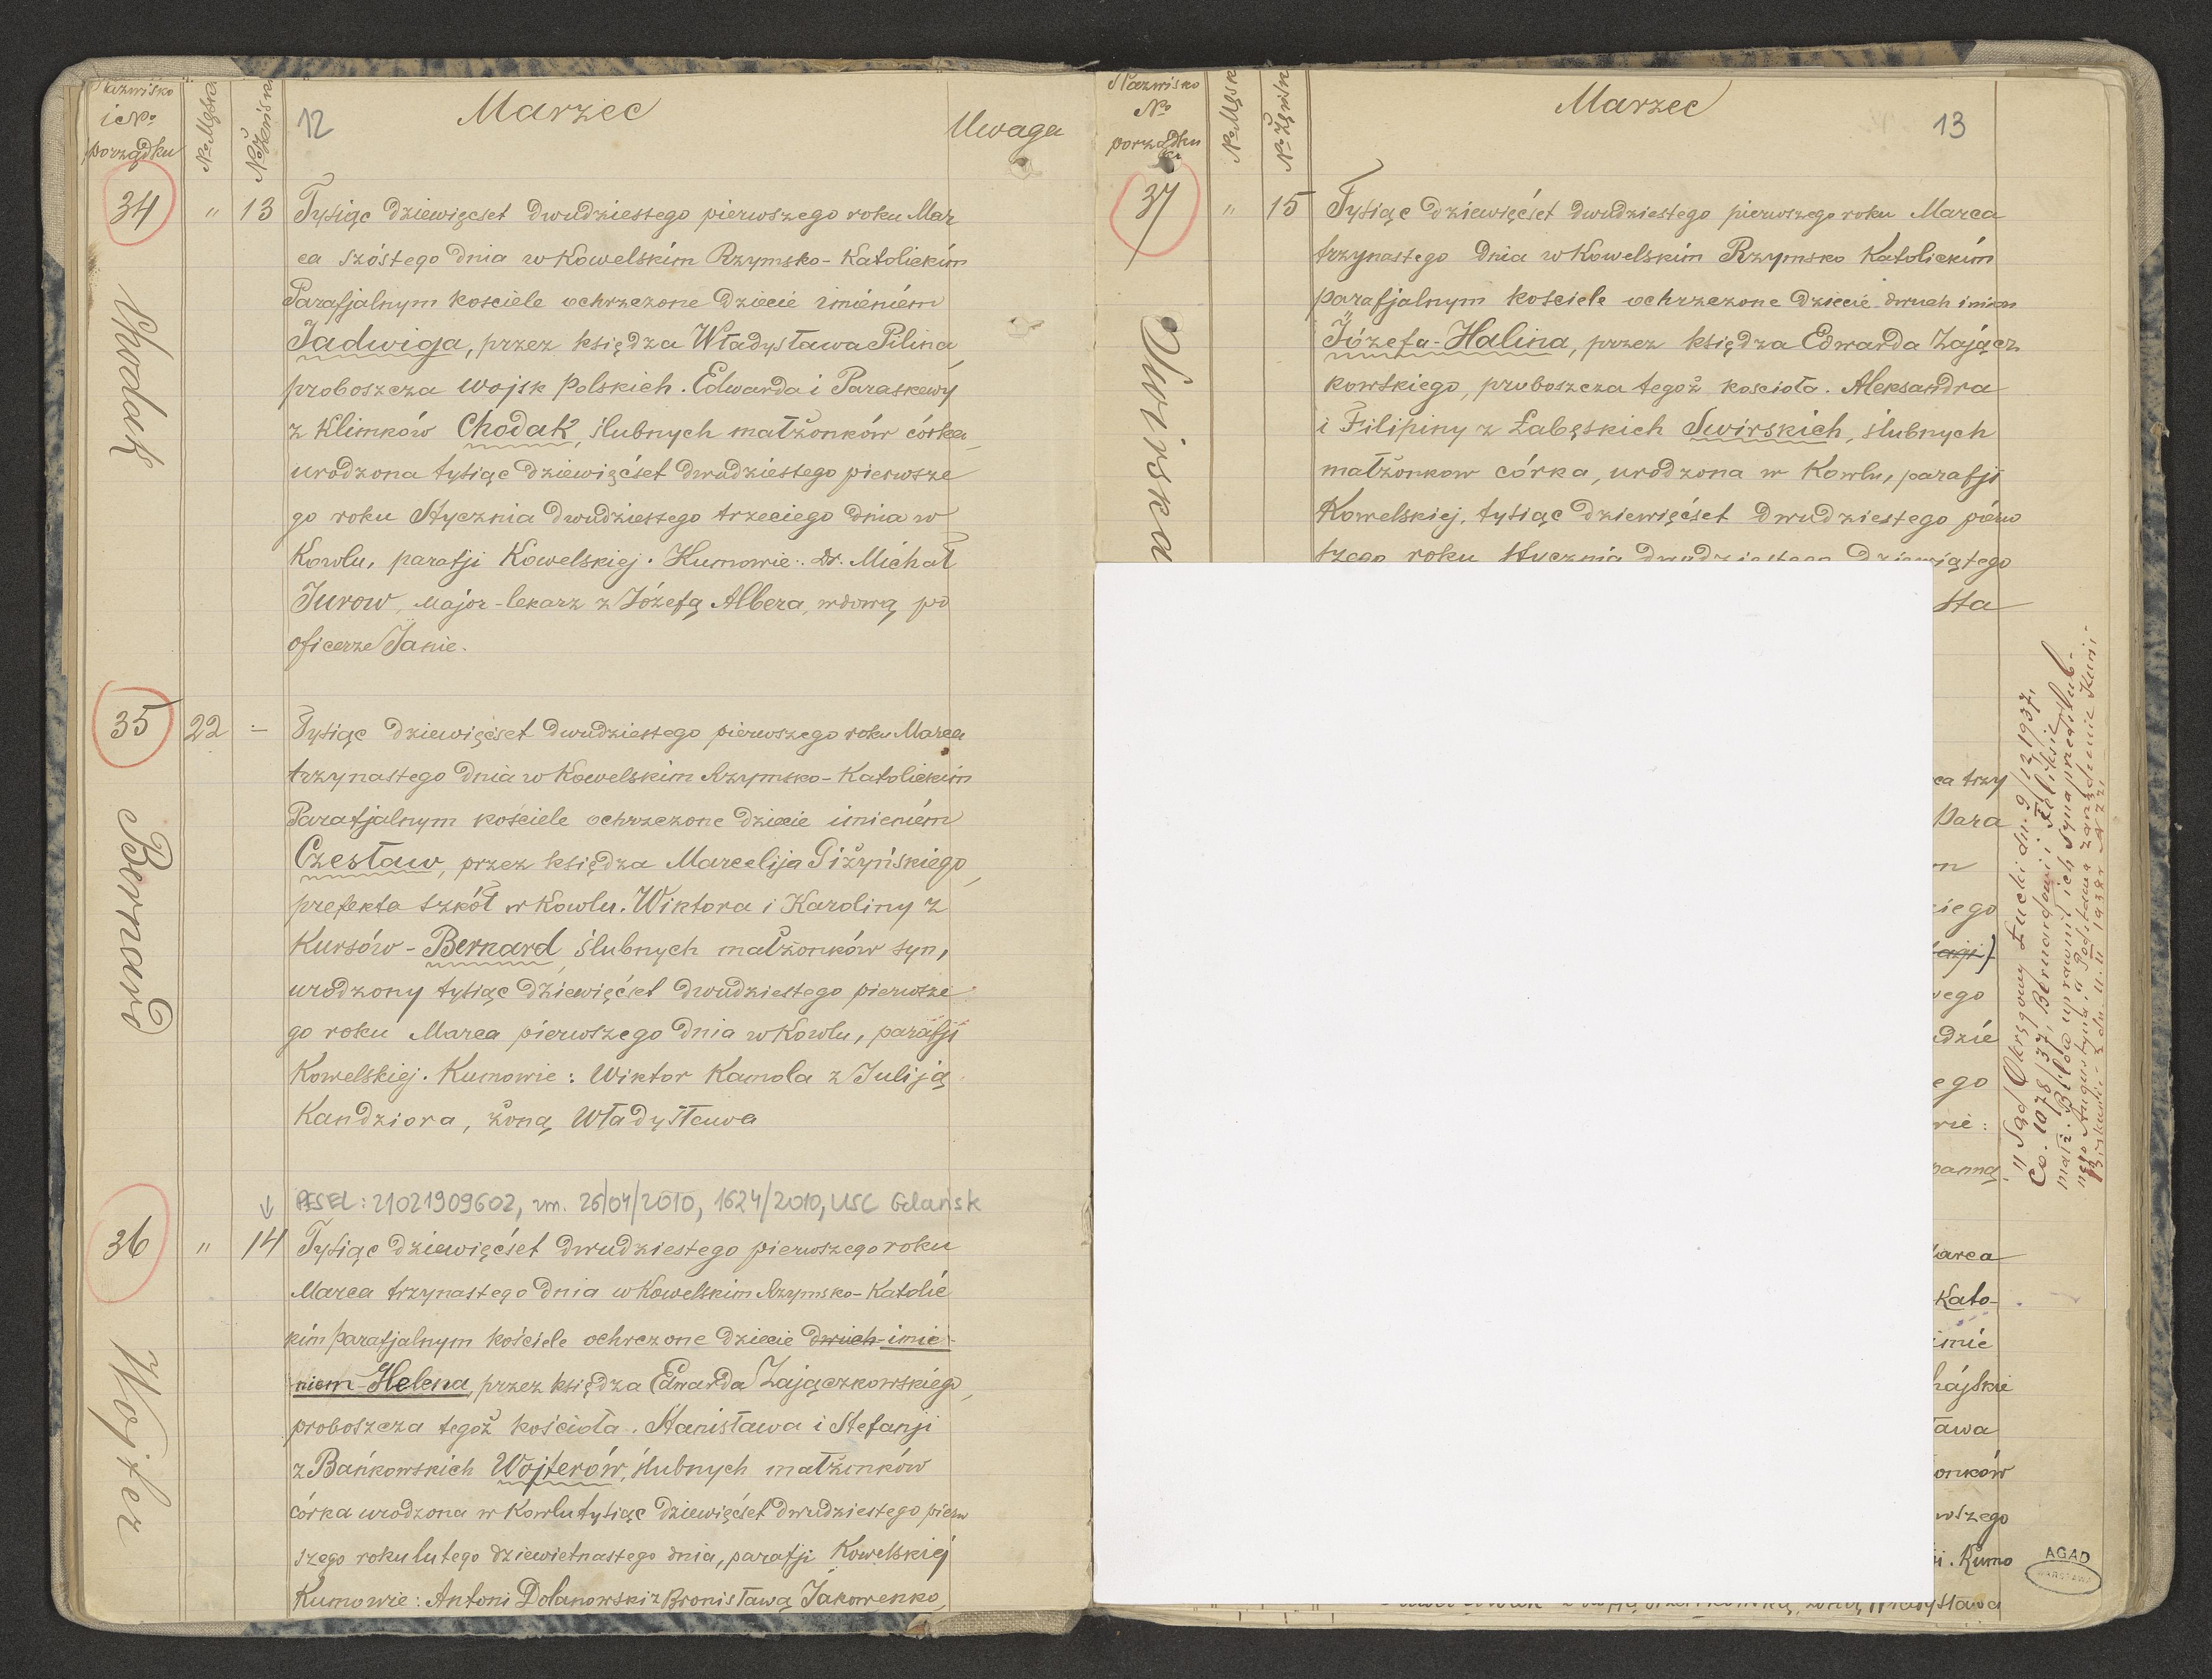 Nazwisko
i No
porządku
No Męska
No Żeńska
12
Marzec
Uwaga
34
"
13
Chodak
Tysiąc dziewięćset dwudziestego pierwszego roku Mar
ca szóstego dnia w Kowelskim Rzymsko-Katolickim
Parafjalnym kosciele ochrzczone dziecie imieniem
Jadwiga, przez księdza Władysława Pilina,
proboszcza wojsk Polskich. Edwarda i Paraskewy
z Klimków Chodak, ślubnych małżonków córka,
urodzona tysiąc dziewięćset dwudziestego pierwsze
go roku Stycznia dwudziestego trzeciego dnia w
Kowlu, parafji Kowelskiej. Kumowie: Dr. Michał
Jurow, Major-lekarz z Józefą Albera, wdową po
oficerze Janie.
35
22
-
Bernard
Tysiąc dziewięćset dwudziestego pierwszego roku Marca
trzynastego dnia w Kowelskim Rzymsko-Katolickim
Parafjalnym kościele ochrzczone dziecie imieniem
Czesław, przez księdza Marcelija Giżyńskiego,
prefekta szkół w Kowlu. Wiktora i Karoliny z
Kursów - Bernard, ślubnych małżonków syn,
urodzony tysiąc dziewięćset dwudziestego pierwsze
go roku Marca pierwszego dnia w Kowlu, parafji
Kowelskiej. Kumowie: Wiktor Kamola z Juliją
Kandziora, żoną Władysława
PESEL: 21021909602, zm. 26/04/2010, 1624/2010, USC Gdańsk
36
"
14
Wojter
Tysiąc dziewięćset dwudziestego pierwszego roku
Marca trzynastego dnia w Kowelskim Rzymsko-Katolic
kim parafjalnym kościele ochrczone dziecie dwuch imie-
niem Helena, przez księdza Edwarda Zajączkowskiego,
proboszcza tegoż kościoła. Stanisława i Stefanji
z Bańkowskich Wojterów, ślubnych małżonków
córka urodzona w Kowlu tysiąc dziewięćset dwudziestego pierw
szego roku lutego dziewietnastego dnia, parafji Kowelskiej
Kumowie: Antoni Dolanowski z Bronisławą Jakowenko,
Nazwisko
No
porządku
No Męsk
No Żeńsk
Marzec
13
37
"
15
Swirska
Tysiąc dziewięćset dwudziestego pierwszego roku Marca
trzynastego dnia w Kowelskim Rzymsko Katolickim
parafjalnym kosciele ochrzczone dziecie dwuch imion
Józefa-Halina, przez księdza Edwarda Zającz
kowskiego, proboszcza tegoż kościoła. Aleksandra
i Filipiny z Łabęskich Swirskich, ślubnych
małżonkow córka, urodzona w Kowlu, parafji
Kowelskiej, tysiąc dziewięćset dwudziestego pierw
szego roku Stycznia dwudziestego dziewiątego
sta
ca trzy
Para
m
kiego
wego
dzie
ego
wie:
panną
arca
Kato-
imie
hajskie
ława
onków
wszego
i. Kumo
Władysława
"Sąd Okręgowy Łucki dn. 9/12 1937,
Co. 1078/37, Bernardowi i Feliksie
małż. Bilów uprawnił ich syna przedślub-
nego Augustyna." Podstawa zarządzenie Kurji
Biskupiej z dn. 11. II 1938 r. N 771
AGAD
WARSZAWA